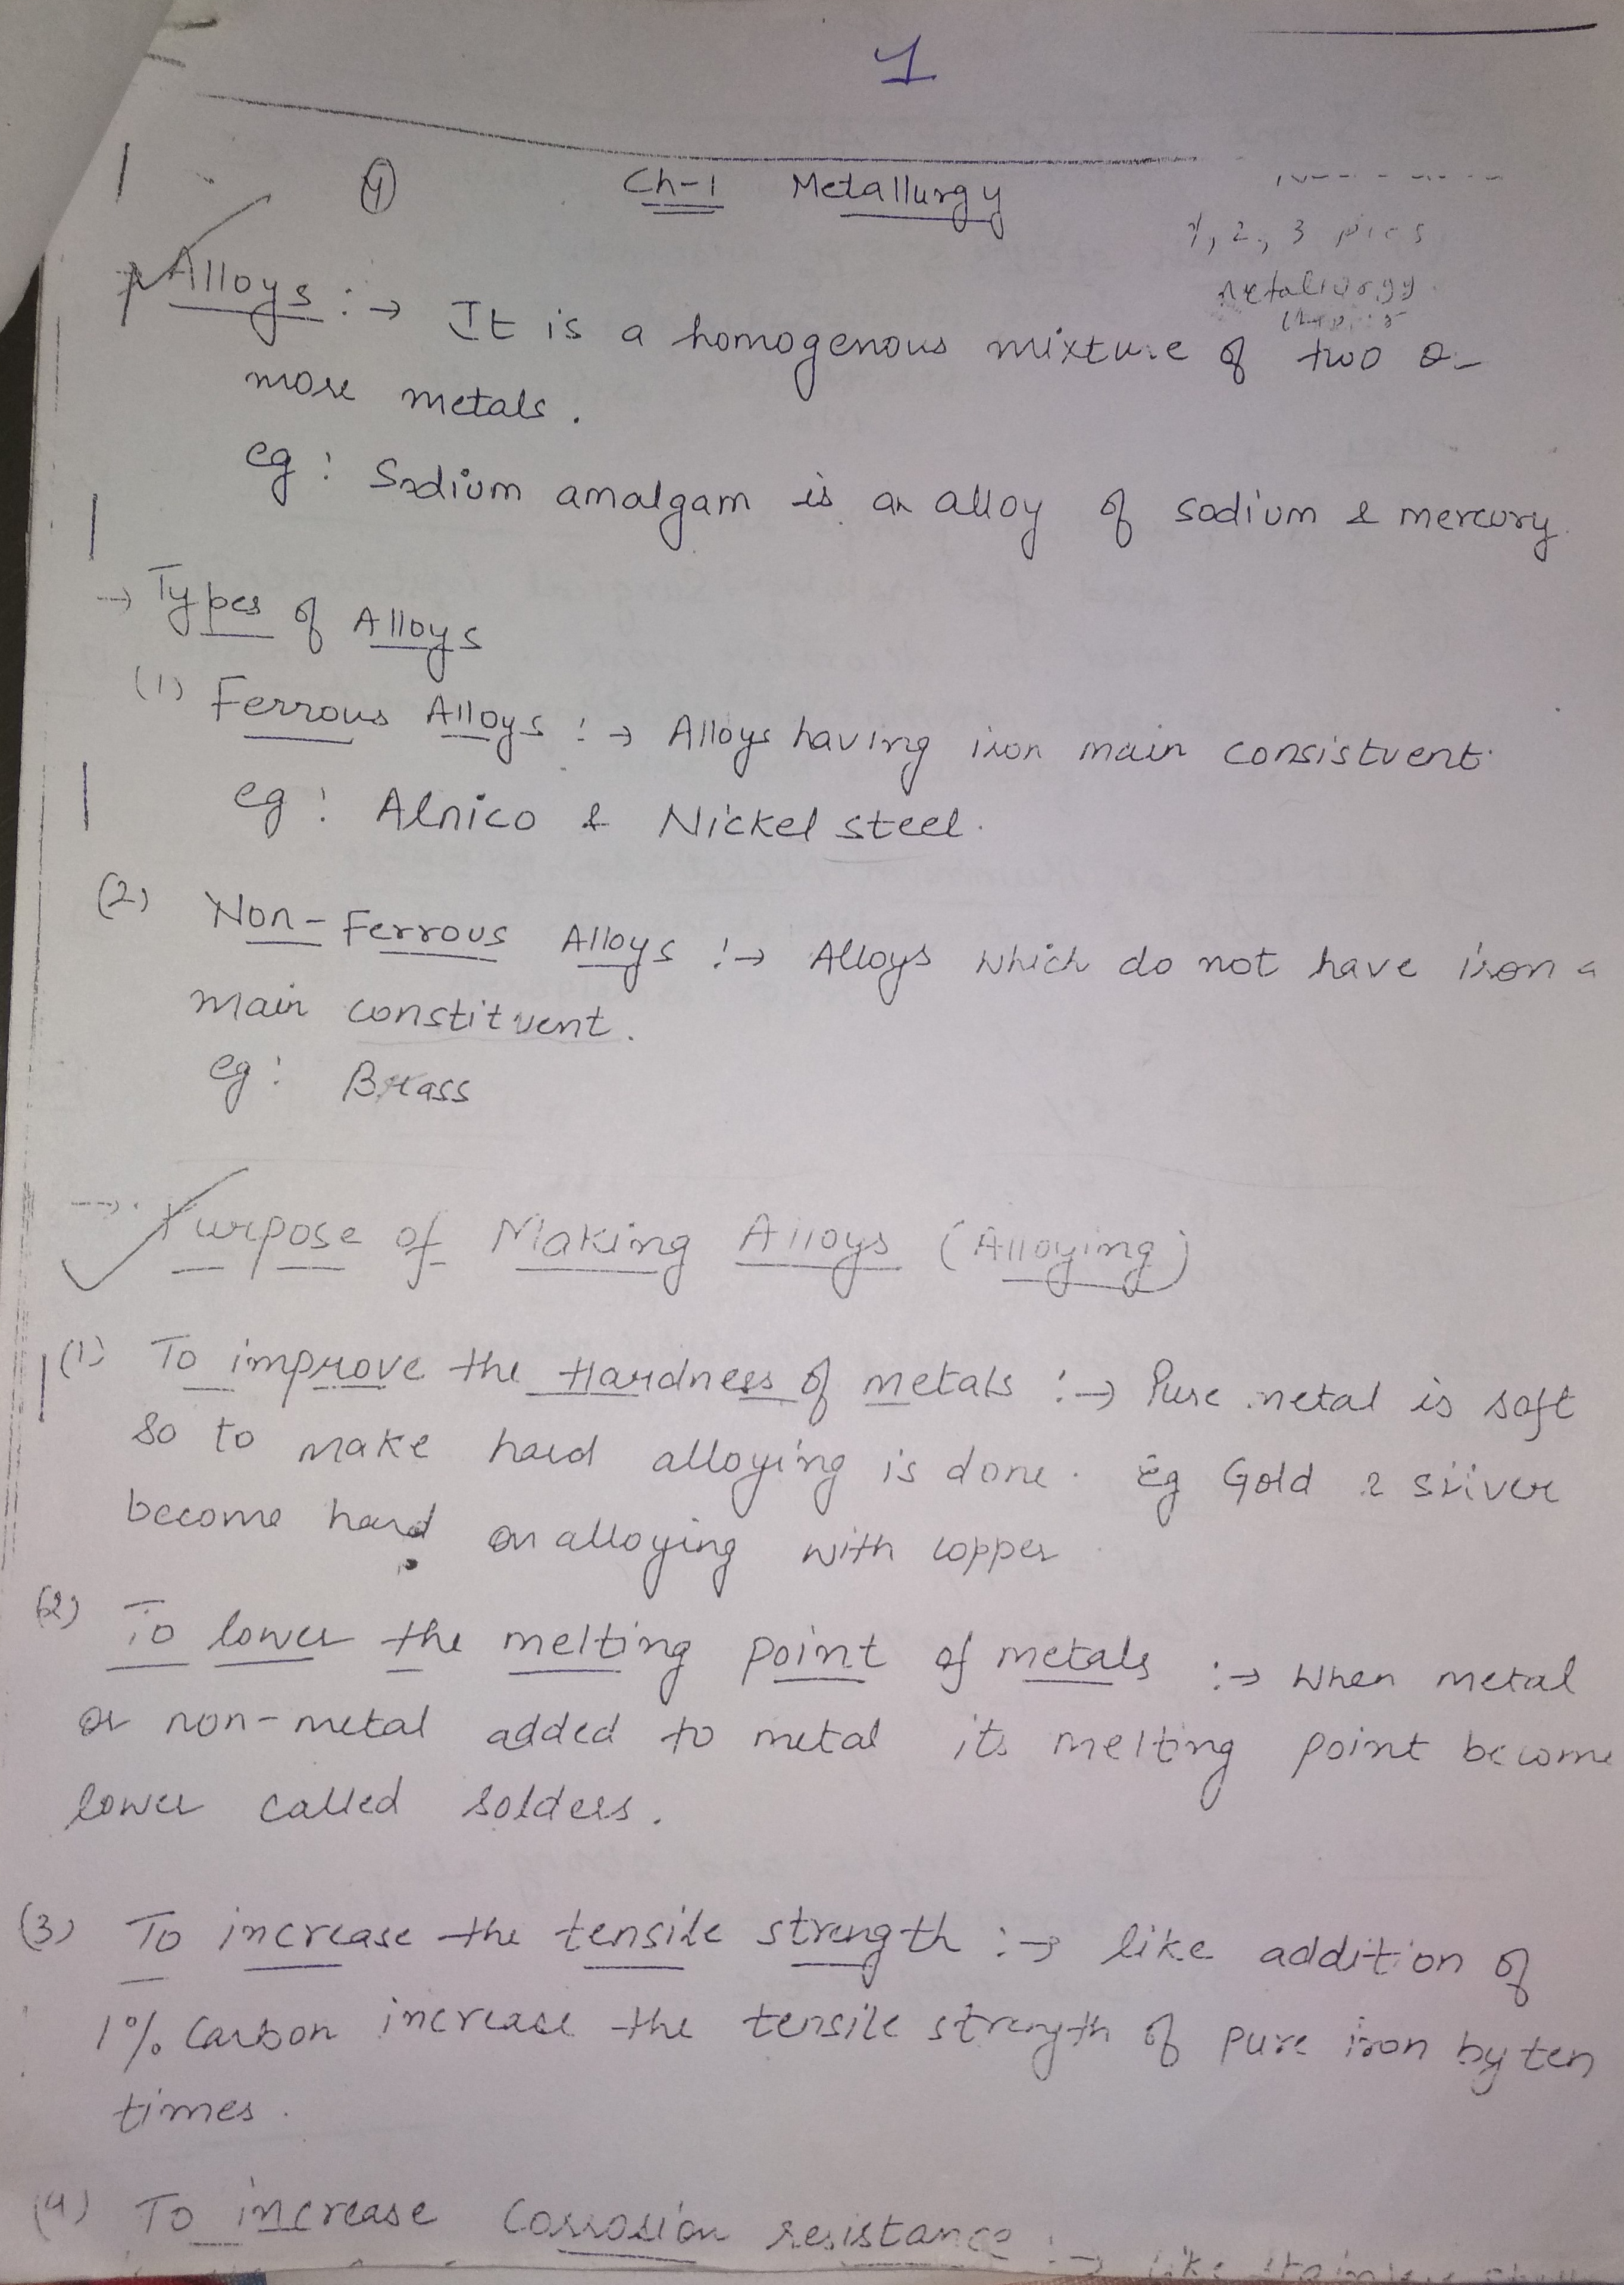 1
4 Ch-1 Metallurgy
1, 2, 3 pics
metallurgy
Alloys :→ It is a homogenous mixture of two or
more metals.
eg : Sodium amalgam is an alloy of sodium & mercury.
→ Types of Alloys
(1) Ferrous Alloys :→ Alloys having iron main consistuent.
eg : Alnico & Nickel steel.
(2) Non-Ferrous Alloys :→ Alloys which do not have iron a
main constituent.
eg : Brass
→ Purpose of Making Alloys (Alloying)
(1) To improve the Hardness of metals :→ Pure metal is soft
so to make hard alloying is done. Eg Gold & silver
become hard on alloying with copper
(2) To lower the melting point of metals :→ When metal
or non-metal added to metal its melting point become
lower called solders.
(3) To increase the tensile strength :→ like addition of
1% Carbon increase the tensile strength of pure iron by ten
times.
(4) To increase Corrosion resistance :→ like stainless